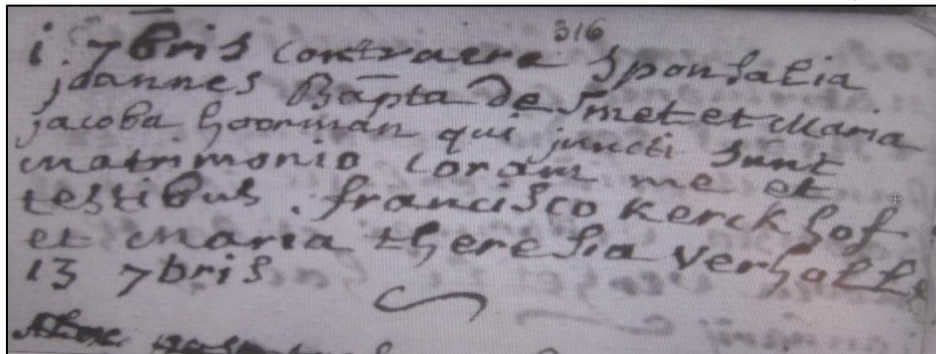 316
i 7bris contraere sponsalia
joannes Bapta de Smet et Maria
jacoba hoorman qui juncti sunt
matrimonio coram me et
testibus . francisco Kerckhof
et Maria theresia Verhalle
13 7bris